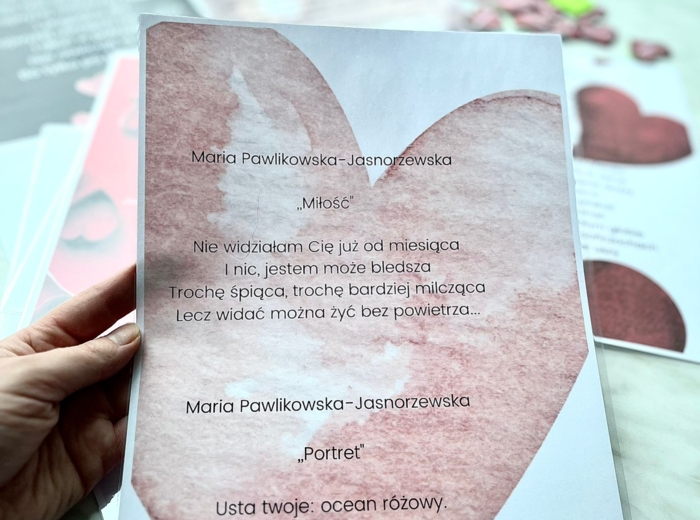 Maria Pawlikowska-Jasnorzewska
„Miłość"
Nie widziałam Cię już od miesiąca
I nic, jestem może bledsza
Trochę śpiąca, trochę bardziej milcząca
Lecz widać można żyć bez powietrza...
Maria Pawlikowska-Jasnorzewska
„Portret"
Usta twoje: ocean różowy.